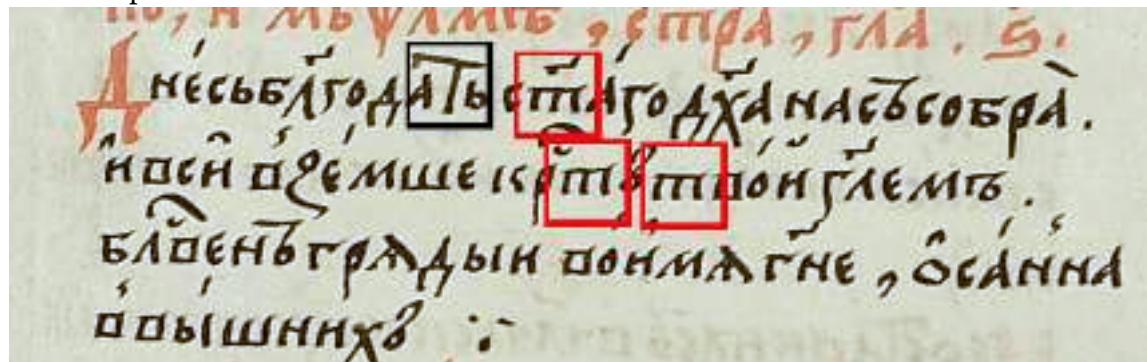 по, н мъ ѱлмѣ, стра, гла. ѕ.
Дне́сь бл҃года́ть ст҃а́го дх҃а на́съ собра̀.
и҆ вси̑ в꙽зе́мше кр҃тъ тво́й гл҃емъ.
бл҃ве́нъ гряды́и во и́мѧ гн҃е, ѻ҆са́нна
в вы́шнихъ ⁖